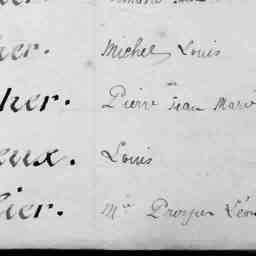 her. Michel Louis
her. Pierre Jean Marie
eux. Louis
lier. Me Prosper Léon